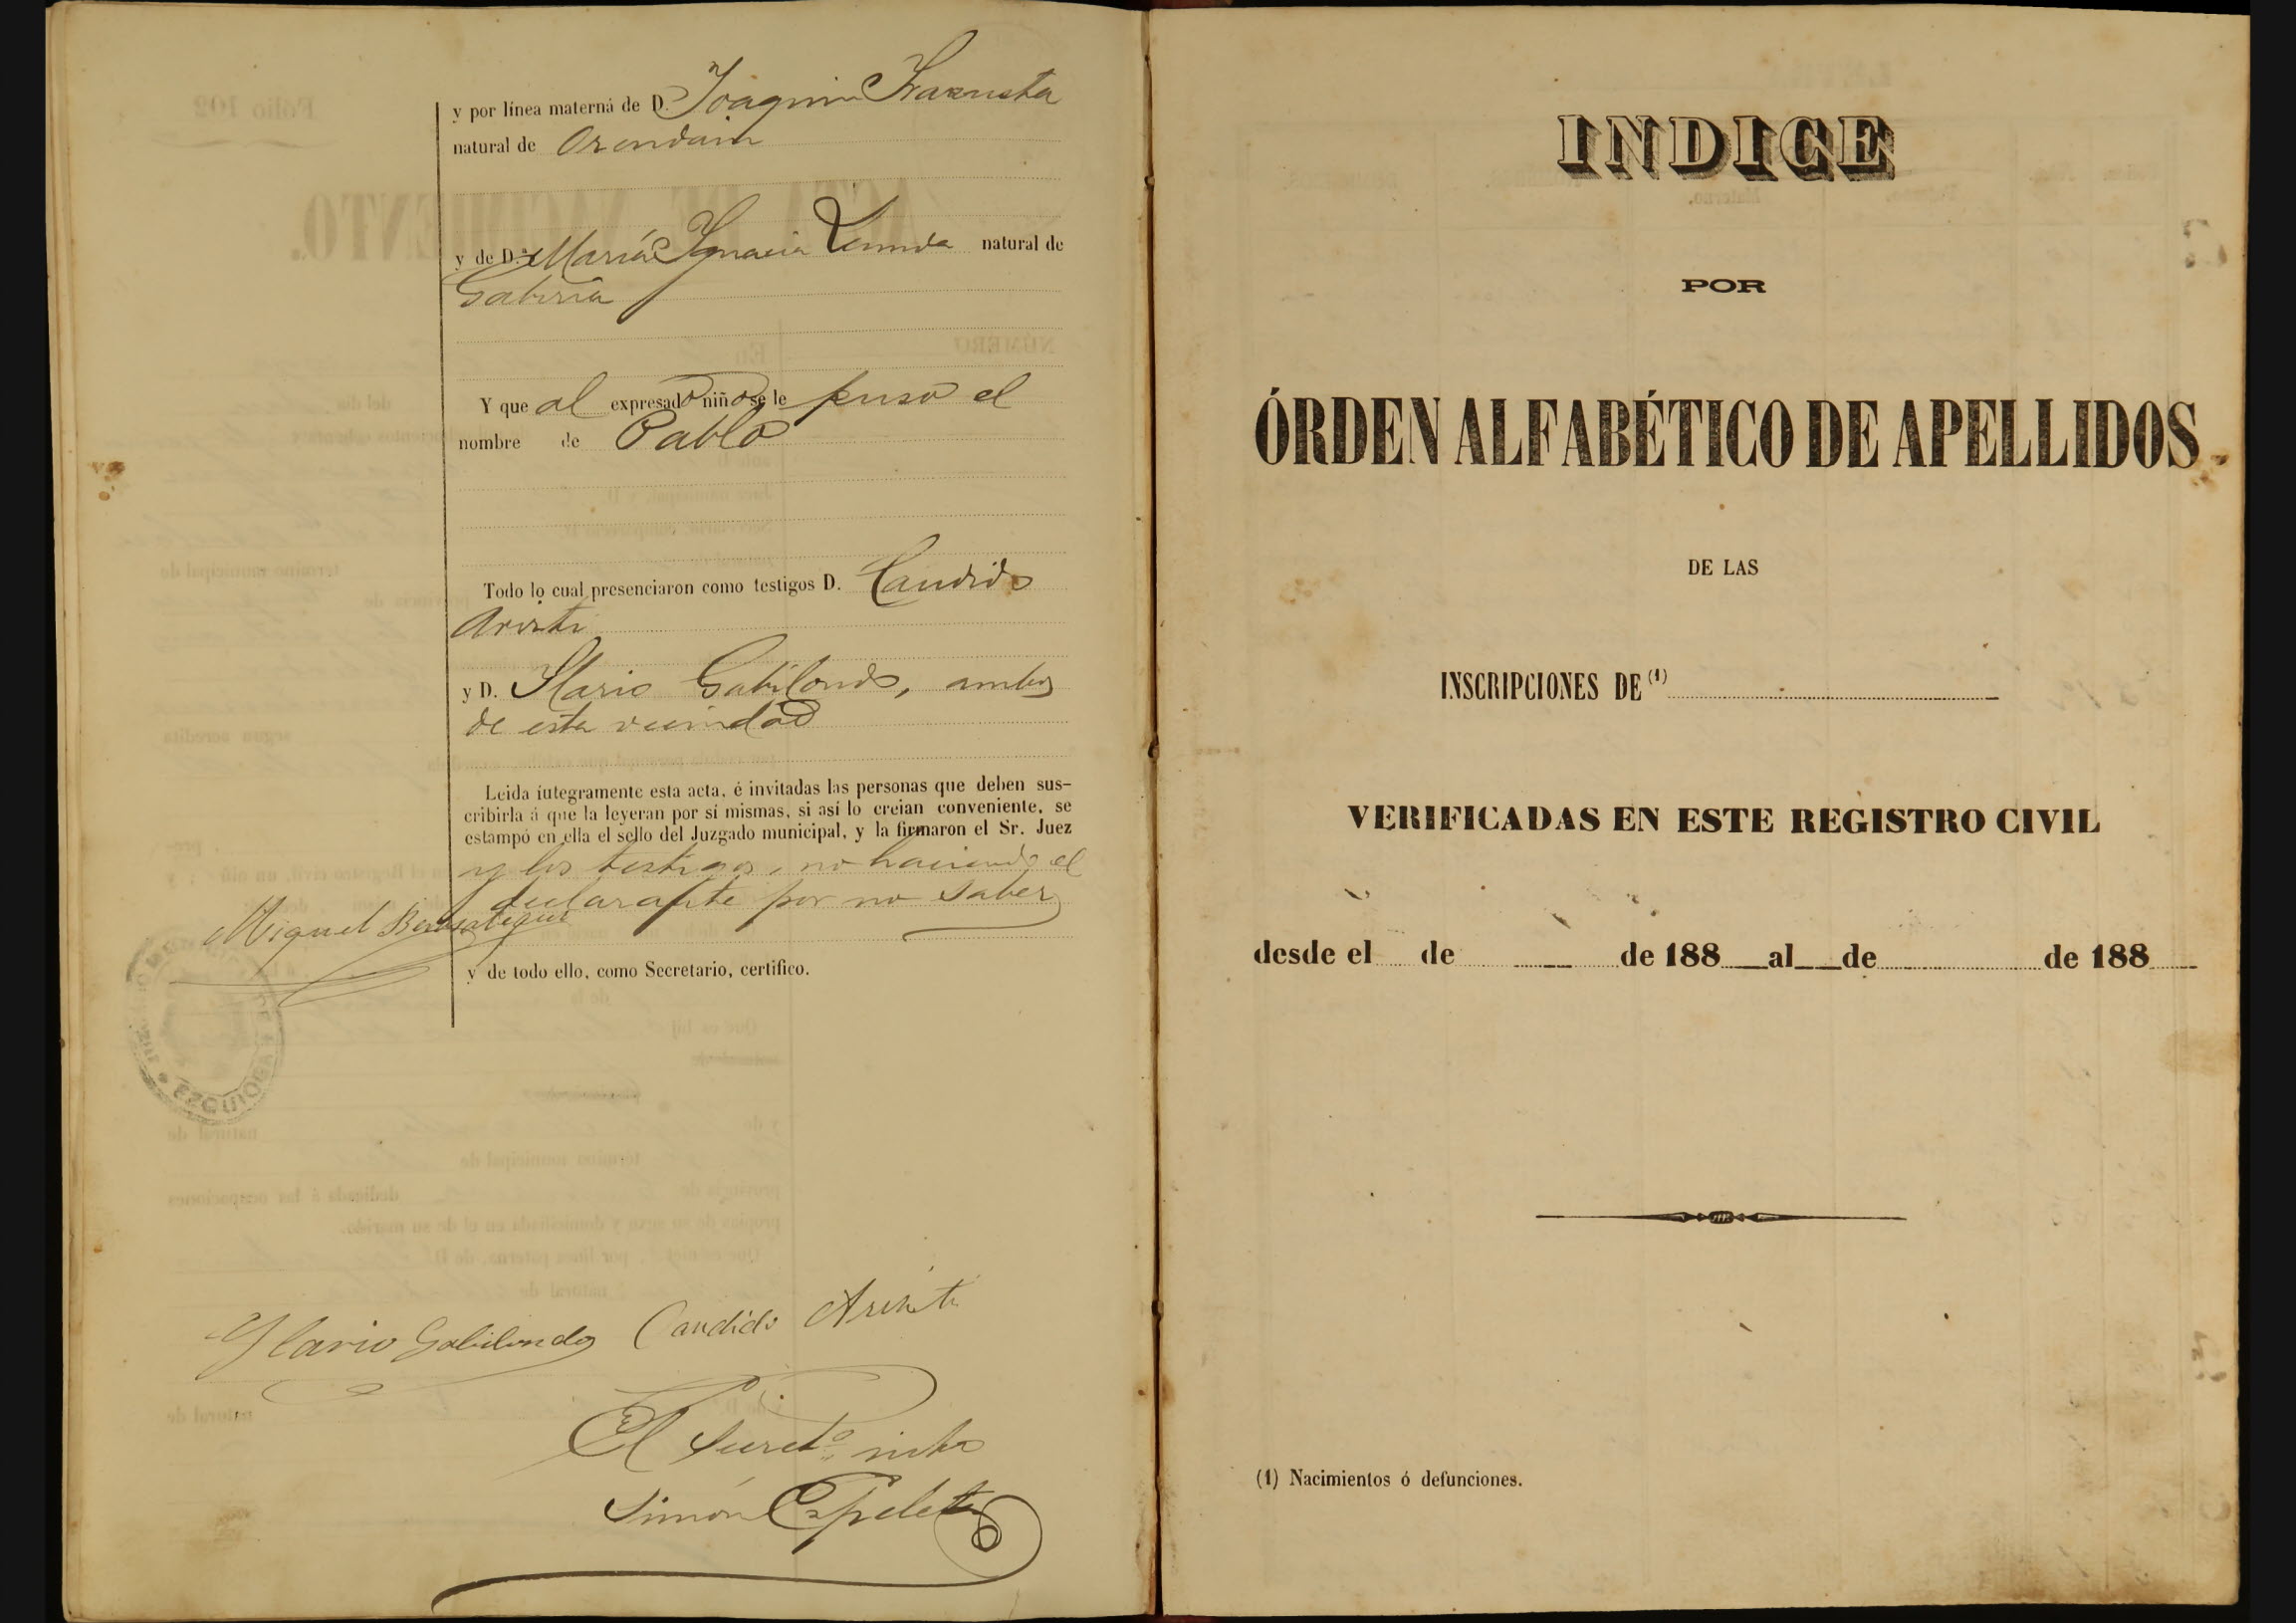 y por línea materna de D. Joaquin Irazusta
natural de Orendain
y de D.ª María Ignacia natural de
Gabiria
Y que al expresado niño se le puso el
nombre de Pablo
Todo lo cual presenciaron como testigos D. Candido
Aristi
y D. Ilario Gabilondo, ambos
de esta vecindad
Leida íntegramente esta acta, é invitadas las personas que deben sus-
cribirla á que la leyeran por sí mismas, si así lo creian conveniente, se
estampó en ella el sello del Juzgado municipal, y la firmaron el Sr. Juez
y los testigos, no haciendo el
declarante por no saber
Miguel
y de todo ello, como Secretario, certifico.
EZQUIOGA
Ylario Gabilondo Candido Aristi
El Secret.º
Simón Espeleta
INDICE
POR
ÓRDEN ALFABÉTICO DE APELLIDOS
DE LAS
INSCRIPCIONES DE (1)
VERIFICADAS EN ESTE REGISTRO CIVIL
desde el de de 188 al de de 188
(1) Nacimientos ó defunciones.